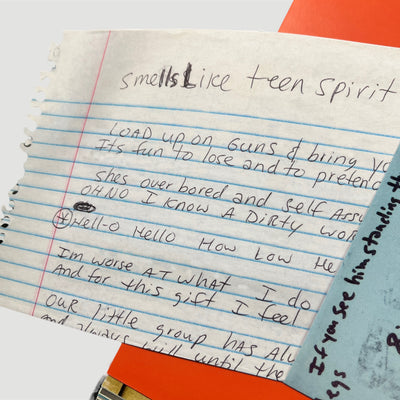 smells Like teen spirit
LOAD up on Guns & bring
Its fun to lose and to pretend
shes over bored and self Assu
OH NO I know A DiRty wor
Hell-o Hello How Low He
Im worse AT what I do
And for this gift I feel
OUR little group HAS Alw
And always will until the
If you see him standing th
egs